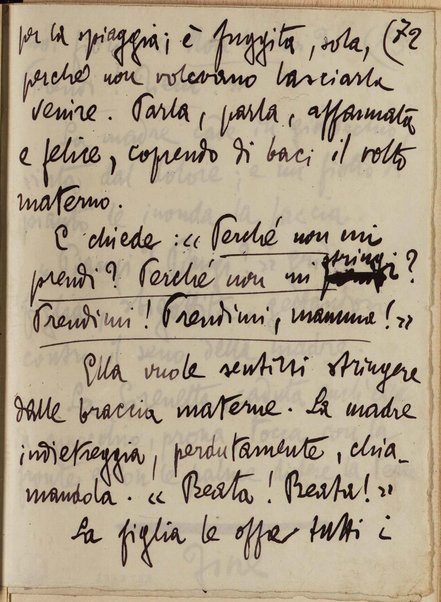 per la spiaggia; è fuggita, sola, (72
perché non volevano lasciarla
venire. Parla, parla, affannata
e felice, coprendo di baci il volto
materno.
E chiede: « Perché non mi
prendi? Perché non mi stringi?
Prendimi! Prendimi, mamma!»
Ella vuole sentirsi stringere
dalle braccia materne. La madre
indietreggia, perdutamente, chia-
mandola. « Beata! Beata!»
La figlia le offre tutti i